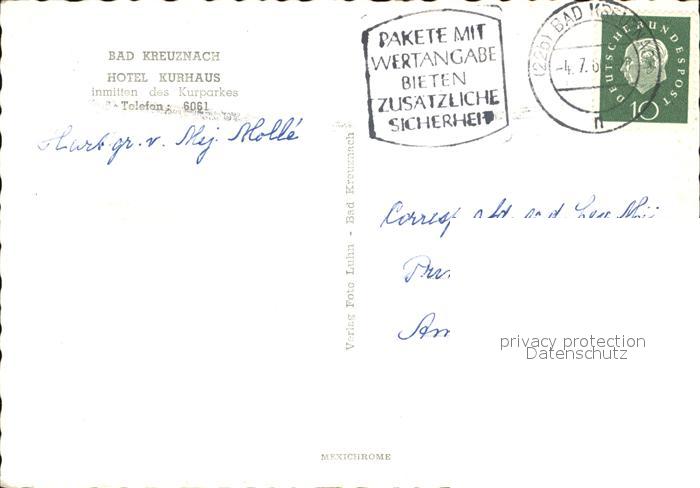 BAD KREUZNACH
HOTEL KURHAUS
inmitten des Kurparkes
Telefon: 6061
PAKETE MIT
WERTANGABE
BIETEN
ZUSÄTZLICHE
SICHERHEIT
(22b) BAD
-4.7.6
n
DEUTSCHE BUNDESPOST
10
gr. v. Mej. Mollé
Verlag Foto Luhn - Bad Kreuznach
An
privacy protection
Datenschutz
MEXICHROME